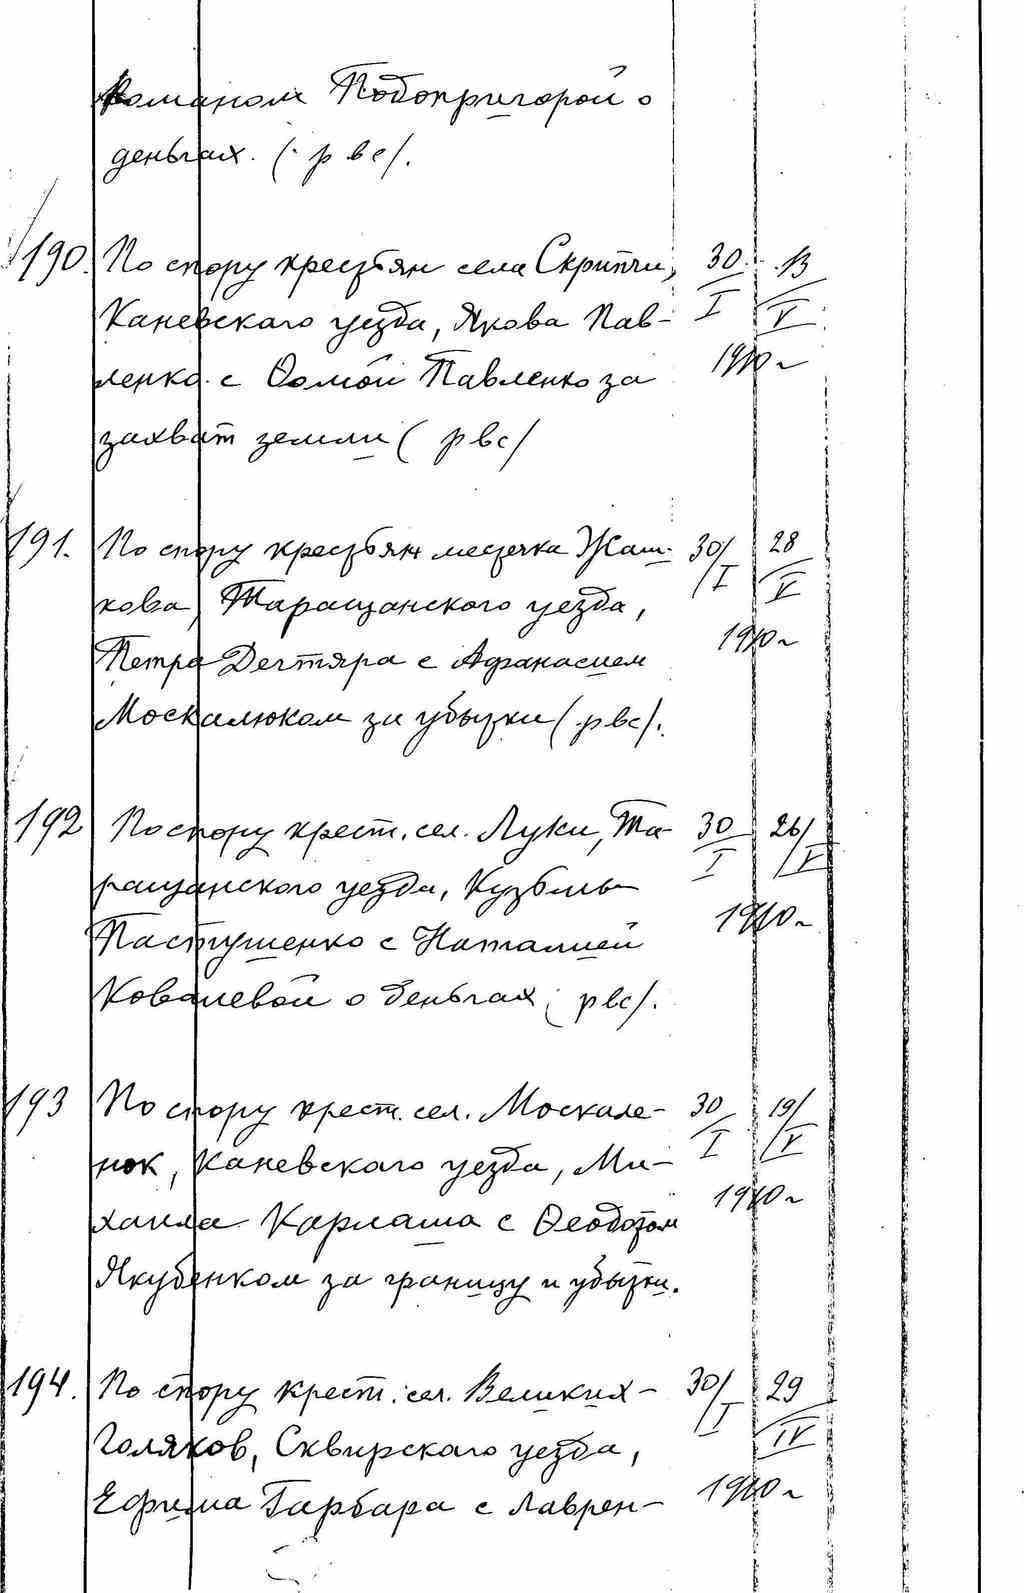 Романом Подопригорой о
деньгах. (рвс/.
190. По спору крестьян села Скрипчи, 30/I 13/V
Каневского уезда, Якова Пав-
1910 г
ленко с Фомой Павленко за
захват земли (рвс/
191. По спору крестьян местечка Жаш- 30/I 28/V
кова, Таращанского уезда,
1910 г
Петра Дегтяра с Афанасием
Москалюком за убытки (рвс/.
192 По спору крест. сел. Луки, Та- 30/I 26/V
ращанского уезда, Кузьмы
1910 г
Пастушенко с Наталией
Ковалевой о деньгах (рвс/.
193 По спору крест. сел. Москале- 30/I 19/V
нок, Каневского уезда, Ми-
1910 г
хаила Карлаша с Феодотом
Якубенком за границу и убытки.
194. По спору крест. сел. Великих- 30/I 29/IV
Голяков, Сквирского уезда,
1910 г
Ефима Гарбара с Лаврен-